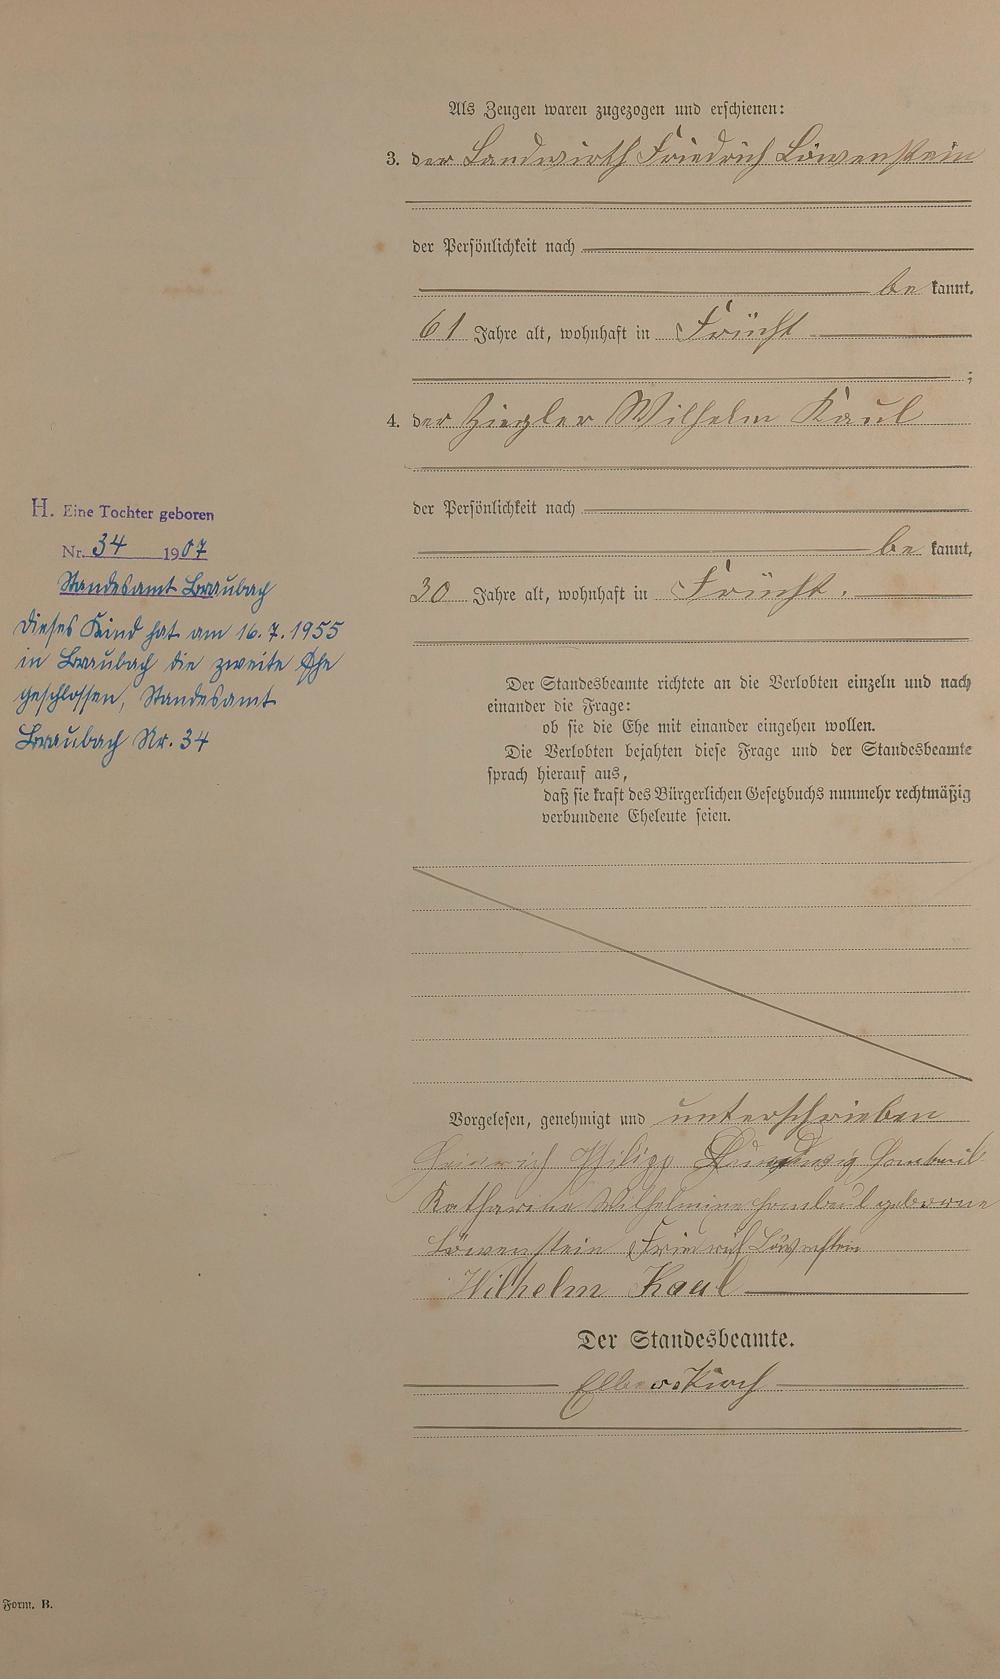 Als Zeugen waren zugezogen und erschienen:
3. der Landwirth Friedrich Löwenstein
der Persönlichkeit nach
be kannt,
61 Jahre alt, wohnhaft in Frücht
;
4. der Ziegler Wilhelm Kaul
der Persönlichkeit nach
be kannt,
30 Jahre alt, wohnhaft in Frücht.
H. Eine Tochter geboren
Nr. 34 1907
Standesamt Braubach
Dieses Kind hat am 16.7.1955
in Braubach die zweite Ehe
geschlossen, Standesamt
Braubach Nr. 34
Der Standesbeamte richtete an die Verlobten einzeln und nach
einander die Frage:
ob sie die Ehe mit einander eingehen wollen.
Die Verlobten bejahten diese Frage und der Standesbeamte
sprach hierauf aus,
daß sie kraft des Bürgerlichen Gesetzbuchs nunmehr rechtmäßig
verbundene Eheleute seien.
Vorgelesen, genehmigt und unterschrieben
Heinrich Philipp
Katharine Wilhelmine geborene
Löwenstein Friedrich Löwenstein
Wilhelm Kaul
Der Standesbeamte.
Form. B.